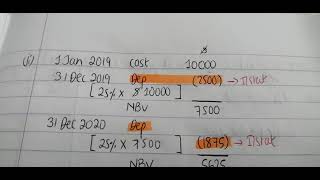 $
(i) 1 Jan 2019 Cost 10000
31 Dec 2019 Dep (2500) → I/Stat
[25% x $ 10000]
NBV 7500
31 Dec 2020 Dep
[25% x 7500] (1875) → I/Stat
NBV 5625